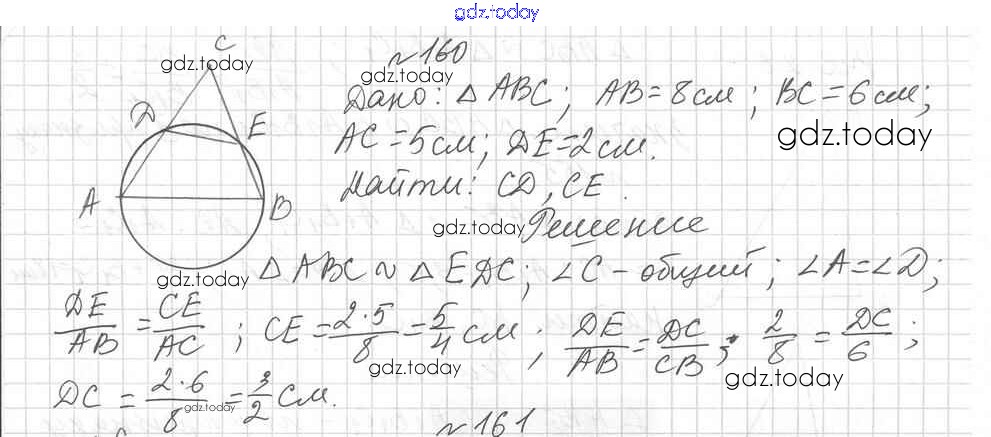 gdz.today
№160
C
gdz.today
gdz.today
Дано: △ ABC; AB = 8 см; BC = 6 см;
D
E
gdz.today
AC = 5 см; DE = 2 см.
Найти: CD, CE.
A
B
gdz.today
Решение
gdz.today
△ ABC ~ △ EDC; ∠C - общий; ∠A = ∠D;
DE/AB = CE/AC; CE = 2·5/8 = 5/4 см; DE/AB = DC/CB; 2/8 = DC/6;
gdz.today
gdz.today
DC = 2·6/8 = 3/2 см.
gdz.today
№161